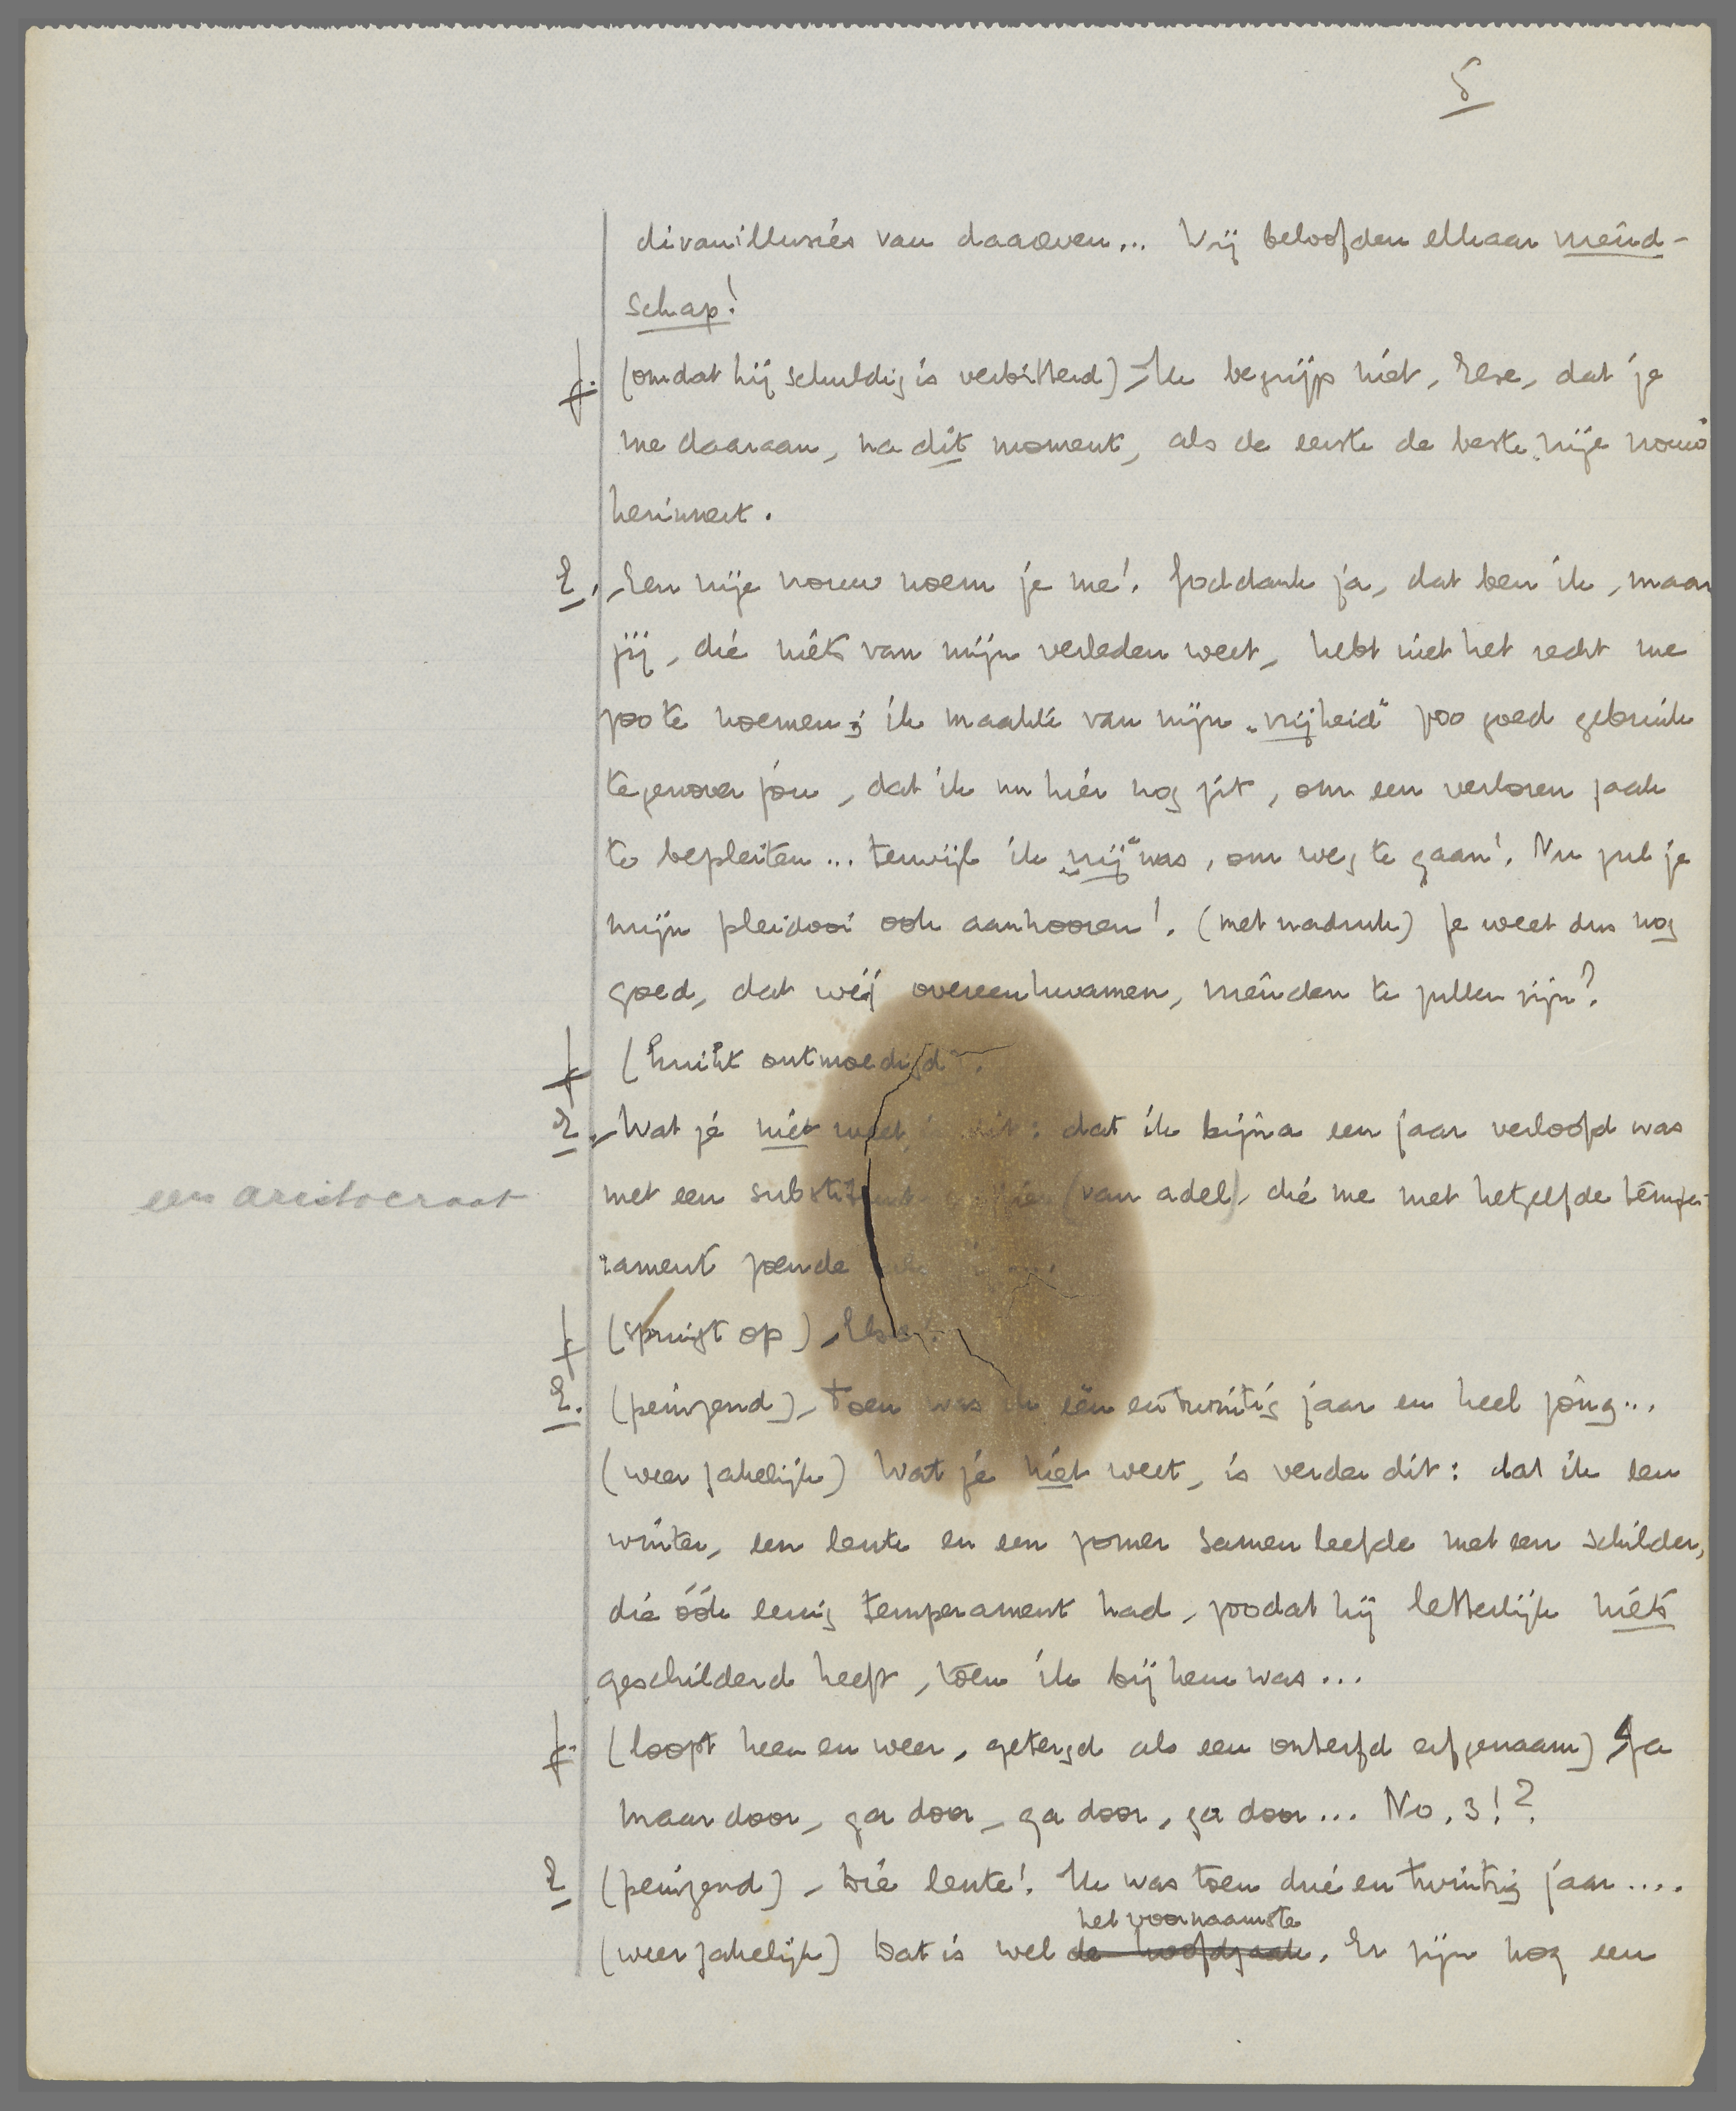 5
divanillusies van daareven... Wij beloofden elkaar vriend-
schap!
f. (omdat hij schuldig is verbitterd) – Ik begrijp niet, Else, dat je
me daaraan, na dit moment, als de eerste de beste vrije vrouw
herinnert.
E. – Een vrije vrouw noem je me! Goddank ja, dat ben ik, maar
jij, die niets van mijn verleden weet, hebt niet het recht me
zoo te noemen; ik maakte van mijn „vrijheid" zoo goed gebruik
tegenover jou, dat ik nu hier nog zit, om een verloren zaak
te bepleiten... terwijl ik „vrij" was, om weg te gaan! Nu zul je
mijn pleidooi ook aanhooren! (met nadruk) Je weet dus nog
goed, dat wij overeenkwamen, vrienden te zullen zijn?
f (knikt ontmoedigd).
E. – Wat je niet weet is dit: dat ik bijna een jaar verloofd was
een aristocraat
met een substituut (van adel), die me met hetzelfde tempe-
rament zoende
f (springt op) – Else!
E. (peinzend) – Toen was ik eën entwintig jaar en heel jong...
(weer zakelijk) Wat je niet weet, is verder dit: dat ik een
winter, een lente en een zomer samen leefde met een schilder,
die óók eenig temperament had, zoodat hij letterlijk niets
geschilderd heeft, toen ik bij hem was...
f. (loopt heen en weer, getergd als een onterfd erfgenaam) Ga
maar door, ga door, ga door, ga door... No. 3!?
E (peinzend) – Die lente! Ik was toen drie en twintig jaar....
het voornaamste
(weer zakelijk) Dat is wel de hoofdzaak. Er zijn nog een